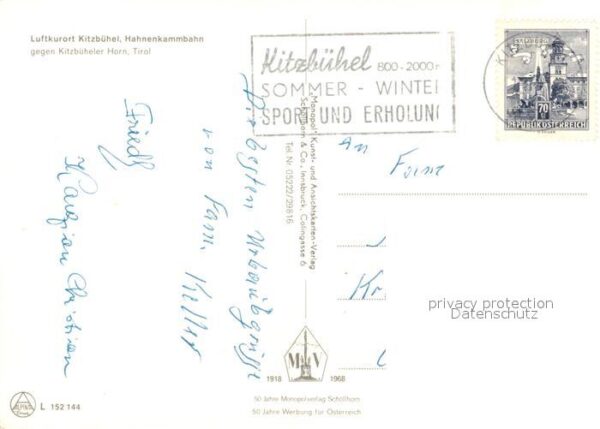 Luftkurort Kitzbühel, Hahnenkammbahn
gegen Kitzbüheler Horn, Tirol
Kitzbühel 800-2000m
SOMMER - WINTER
SPORT UND ERHOLUNG
SALZBURG
70
REPUBLIK ÖSTERREICH
Die besten Urlaubsgrüße
von Fam. Keller
Friedl
Christian
"Monopol" Kunst- und Ansichtskarten-Verlag
Schöllhorn & Co., Innsbruck, Colingasse 6
Tel Nr. 05222/29816
An
Kr.
privacy protection
Datenschutz
M V
1918 1968
50 Jahre Monopolverlag Schöllhorn
50 Jahre Werbung für Österreich
ALPINE
L 152 144